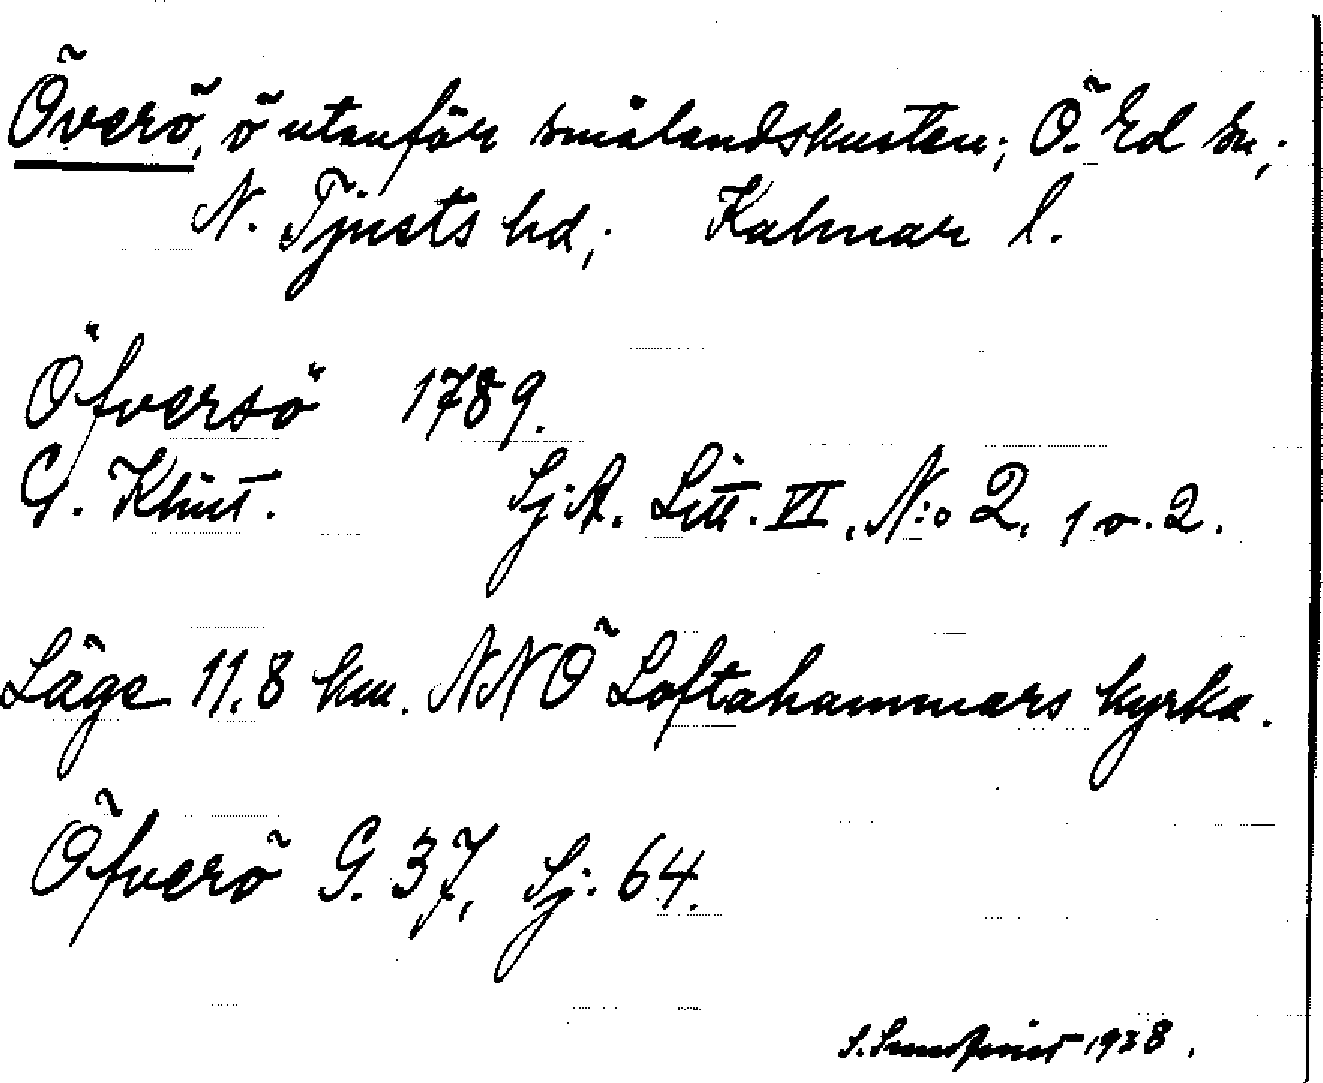 Överö, ö utanför smålandskusten; Ö. Ed sn,;
N. Tjusts hd,; Kalmar l.
Öfversö 1789.
G. Klint. Sj.A. Litt. VI, N:o 2, 1 o. 2.
Läge 11.8 km. NNÖ Loftahammars kyrka.
Öfverö G. 37, Sj. 64.
S. Sundqvist 1928.